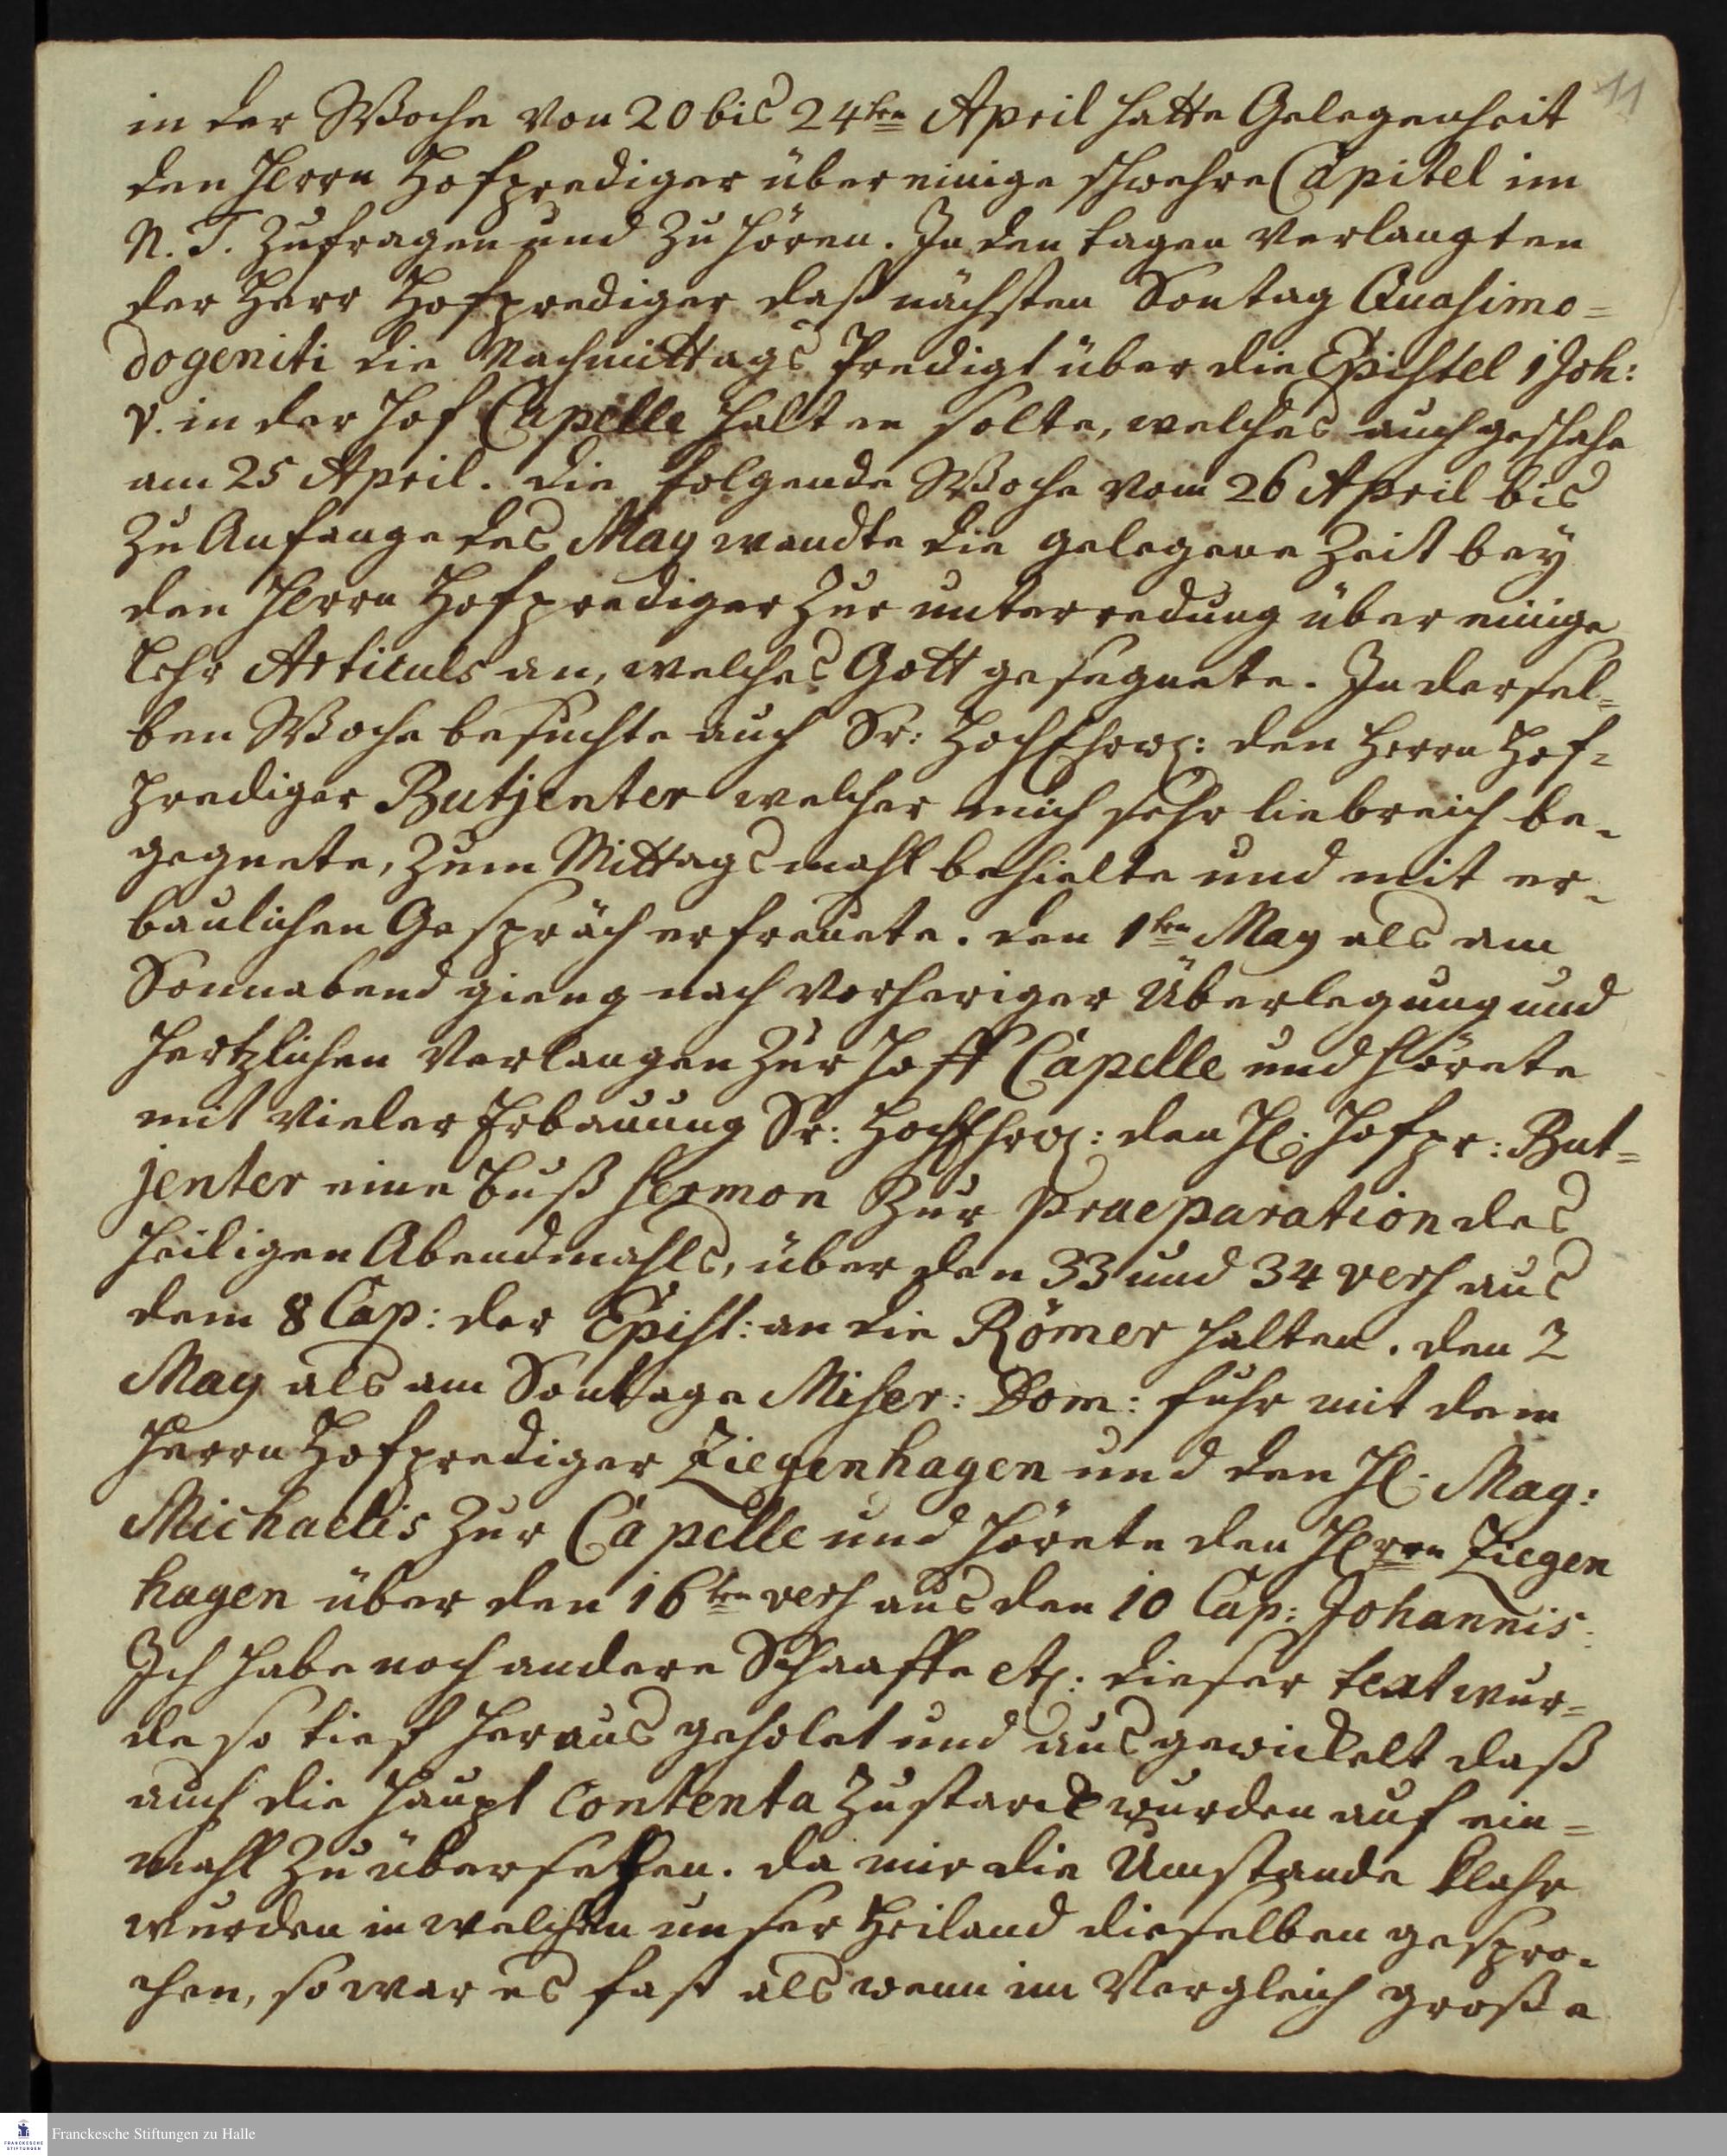 11
in der Woche von 20 bis 24ten April hatte Gelegenheit
den Herrn Hofprediger über einige schwehre Capitel im
N. T. zufragen und zu hören. In den tagen verlangten
der Herr Hofprediger daß nächsten Sontag Quasimo=
dogeniti die Nachmittags Predigt über die Epistel 1 Joh:
V. in der Hof Capelle halten solte, welches auch geschahe
am 25 April. die folgende Woche vom 26 April bis
zu Anfange des May wandte die gelegene Zeit bey
den Herrn Hofprediger zur unterredung über einige
Lehr Articuls an, welches Gott gesegnete. In dersel=
ben Woche besuchte auch Sr: HochEhrw: den Herrn Hof=
prediger Butjenter welcher mich sehr liebreich be=
gegnete, zum Mittagsmahl behielte und mit er=
baulichen Gespräch erfreuete. den 1ten May als am
Sonnabend gieng nach vorheriger Überlegung und
hertzlichen Verlangen zur Hoff Capelle und hörete
mit vieler Erbauung Sr: HochEhrw: den H. Hofpr: But=
jenter eine buß Sermon zur Praeparation des
heiligen Abendmahls, über den 33 und 34 vers aus
dem 8 Cap: der Epist: an die Römer halten. den 2
May als am Sontage Miser: Dom: fuhr mit dem
Herrn Hofprediger Ziegenhagen und den H. Mag:
Michaelis zur Capelle und hörete den Herrn Ziegen
hagen über den 16ten vers aus den 10 Cap: Johannis:
Ich habe noch andere Schaaffe etc: dieser text wur=
de so tief heraus geholet und ausgewickelt daß
auch die Haupt Contenta zu starck wurden auf ein=
mahl zu übersehen. da mir die Umstande klahr
wurden in welchen unser Heiland dieselben gespro=
chen, so war es fast als wenn im Vergleich große
Franckesche Stiftungen zu Halle